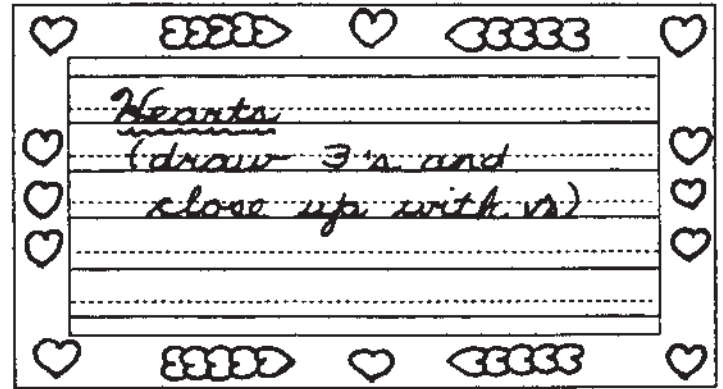 Hearts
(draw 3's and
close up with vs)